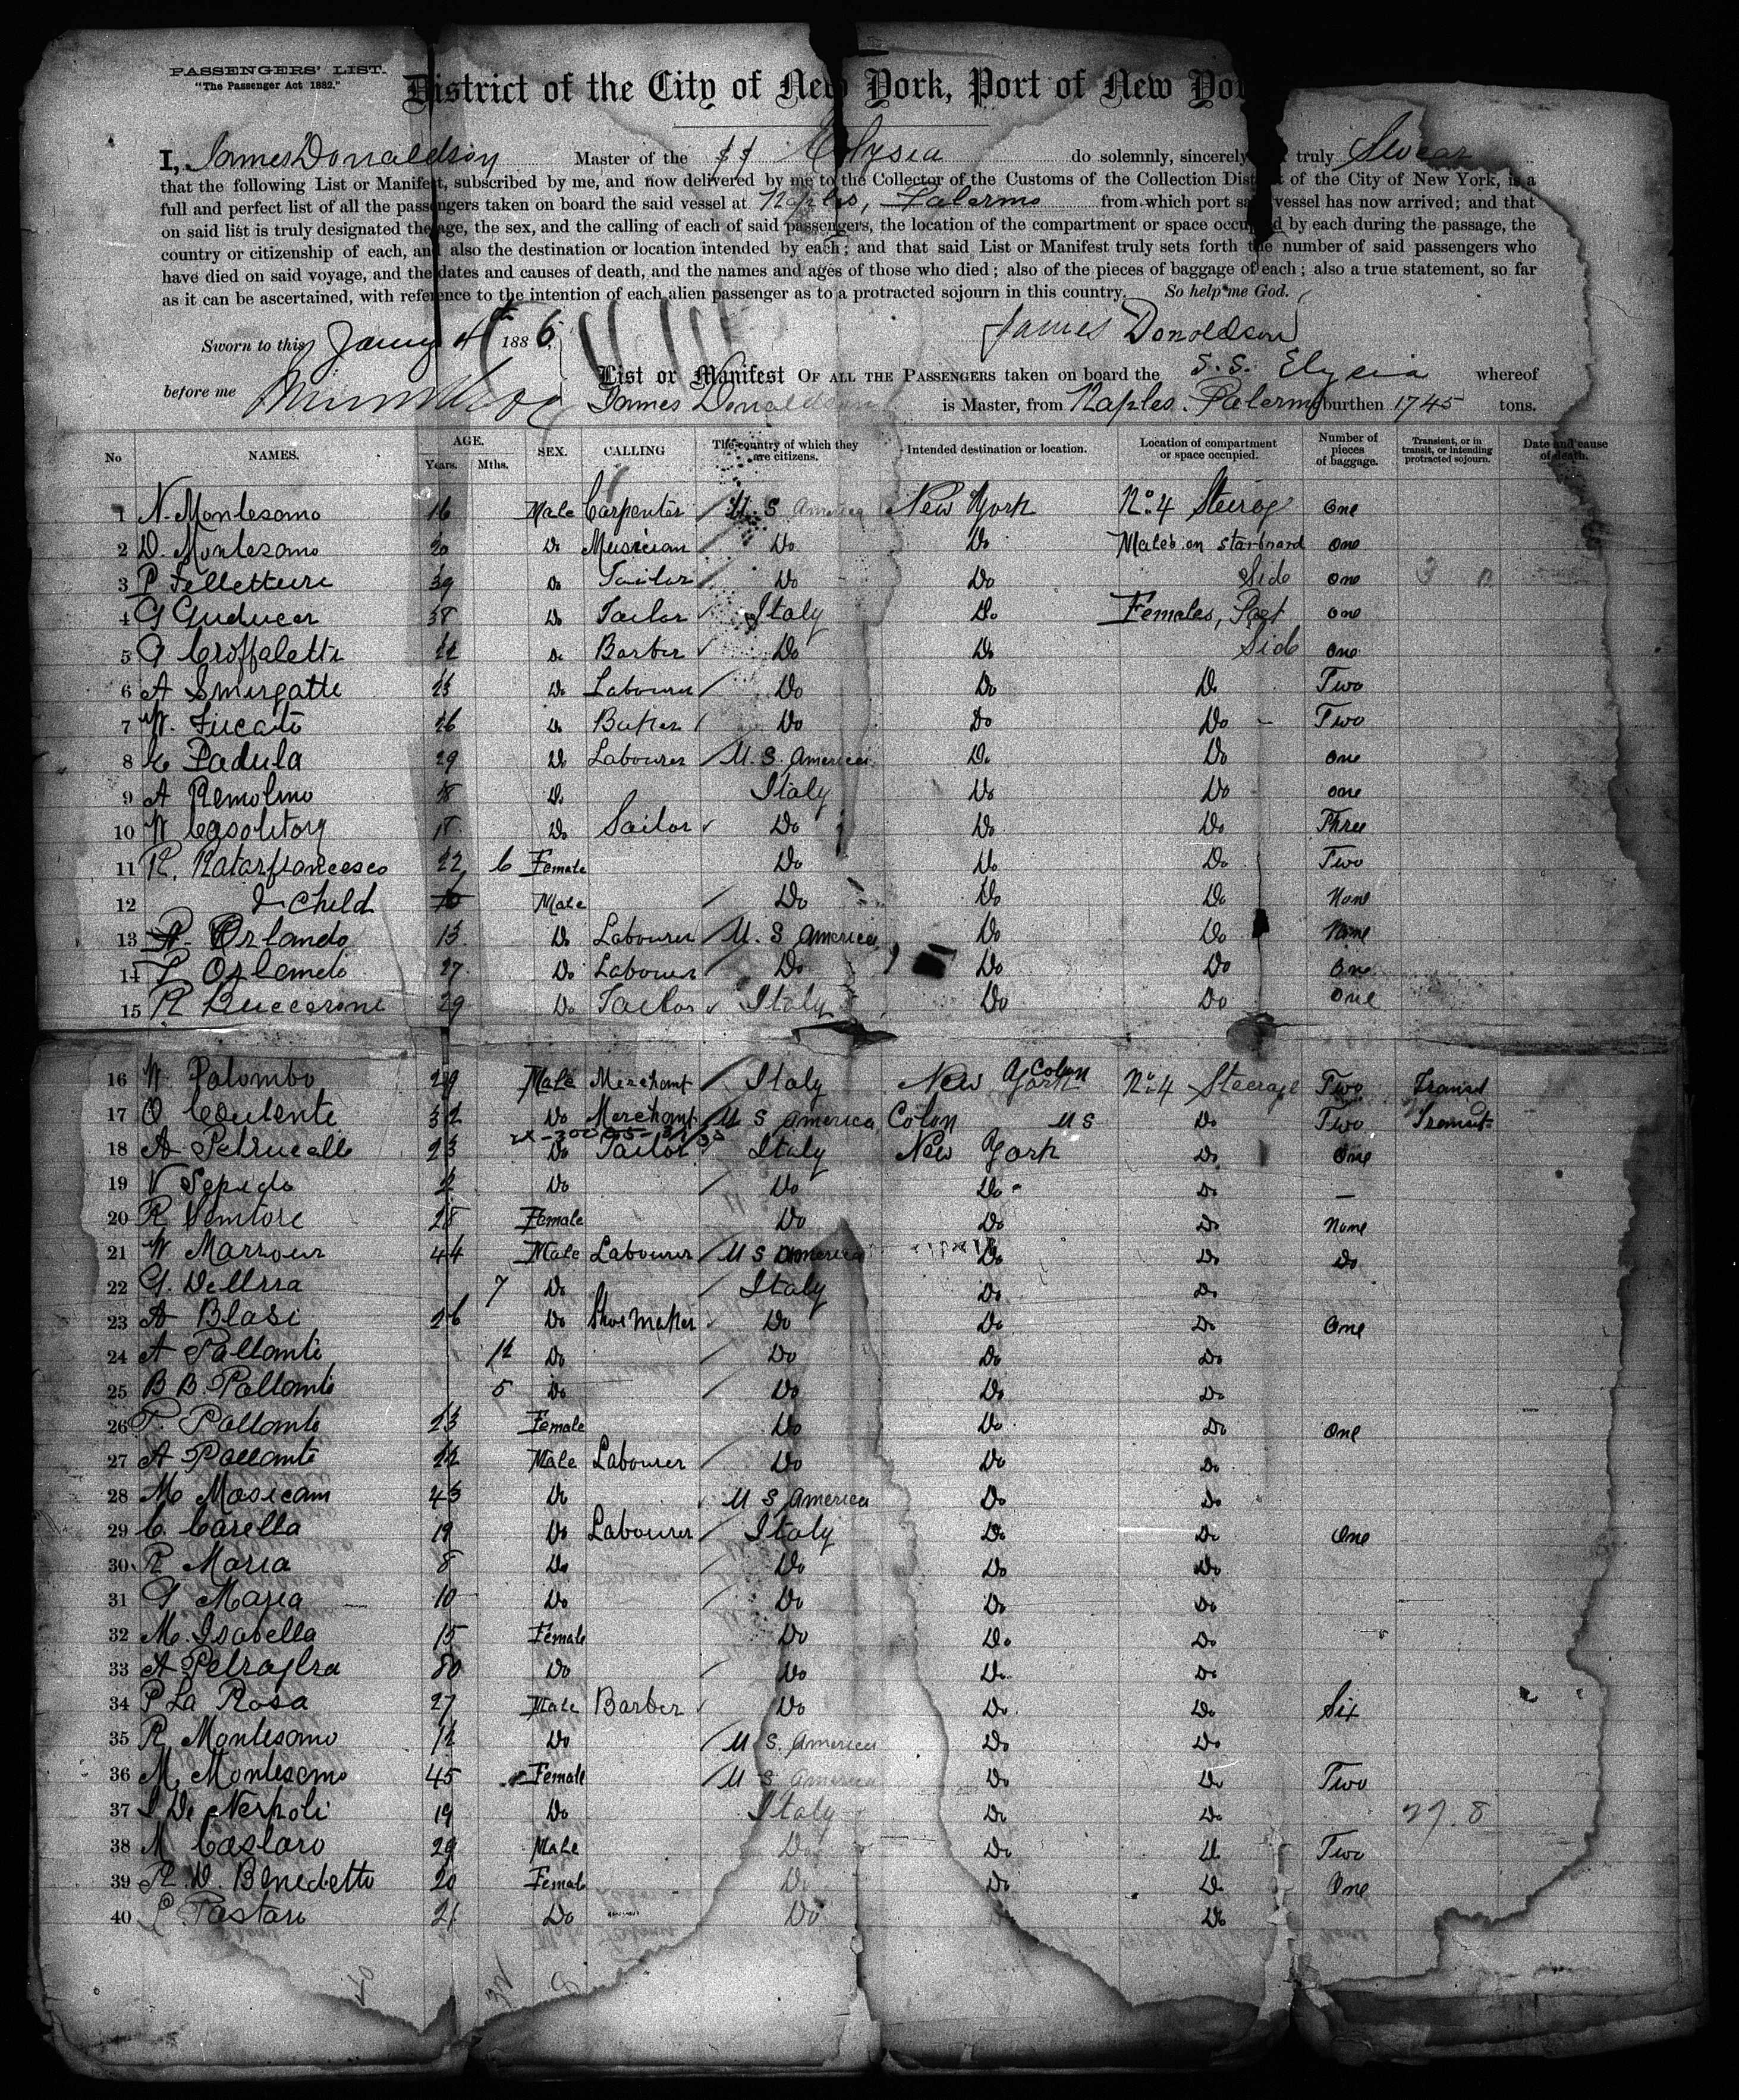 PASSENGERS' LIST.
"The Passenger Act 1882."
District of the City of New York, Port of New Yor
I, James Donaldson Master of the SS Elysia do solemnly, sincerely truly Swear
that the following List or Manifest, subscribed by me, and now delivered by me to the Collector of the Customs of the Collection District of the City of New York, is a
full and perfect list of all the passengers taken on board the said vessel at Naples, Palermo from which port said vessel has now arrived; and that
on said list is truly designated the age, the sex, and the calling of each of said passengers, the location of the compartment or space occupied by each during the passage, the
country or citizenship of each, and also the destination or location intended by each; and that said List or Manifest truly sets forth the number of said passengers who
have died on said voyage, and the dates and causes of death, and the names and ages of those who died; also of the pieces of baggage of each; also a true statement, so far
as it can be ascertained, with reference to the intention of each alien passenger as to a protracted sojourn in this country. So help me God.
Sworn to this Jany 4th 1886, James Donaldson
before me
List or Manifest OF ALL THE PASSENGERS taken on board the S.S. Elysia whereof
James Donaldson is Master, from Naples. Palermo burthen 1745 tons.
No NAMES. AGE. Years. Mths. SEX. CALLING The country of which they are citizens. Intended destination or location. Location of compartment or space occupied. Number of pieces of baggage. Transient, or in transit, or intending protracted sojourn. Date and cause of death.
1 N. Montesano 16 Male Carpenter U. S America New York No. 4 Steerage One
2 D. Montesano 20 Do Musician Do Do Males on starboard One
3 P Pelletteri 39 Do Tailor Do Do Side One
4 G Guducer 38 Do Tailor Italy Do Females, Port One
5 Croffaletti 22 Do Barber Do Do Side One
6 A Smirgatte Do Labourer Do Do Do Two
7 N. Fucati 26 Do Baker Do Do Do Two
8 Padula 29 Do Labourer U. S. America Do Do One
9 A Remolino Do Italy Do Do One
10 N Casolitory 18 Do Sailor Do Do Do Three
11 R. Ratarfrancesco 22 6 Female Do Do Do Two
12 & Child Male Do Do Do None
13 Orlando 13 Do Labourer U. S America Do Do None
14 Orlando 27 Do Labourer Do Do Do One
15 R Buccerone 29 Do Tailor Italy Do Do One
16 N. Palombo 29 Male Merchant Italy New York Colon No. 4 Steerage Two Transit
17 O 32 Do Merchant U S America Colon U S Do Two Transit
18 A Petrucelle 23 Do Tailor Italy New York Do One
19 V Sepede 2 Do Do Do Do —
20 R Venitore 28 Female Do Do Do None
21 N Marrour 44 Male Labourer U S America Do Do Do
22 G. 7 Do Italy Do Do
23 A Blasi 26 Do Shoe Maker Do Do Do One
24 A Pallanti 12 Do Do Do Do
25 B B. Pallanti 5 Do Do Do Do
26 Pallanti 23 Female Do Do Do One
27 A Pallanti 22 Male Labourer Do Do Do
28 M Mosicam 43 Do U S America Do Do
29 C. Carella 19 Do Labourer Italy Do Do One
30 R Maria 8 Do Do Do Do
31 G Maria 10 Do Do Do Do
32 M. Isabella 15 Female Do Do Do
33 A Petraglia Do Do Do Do
34 P La Rosa 27 Male Barber Do Do Do Six
35 R Montesano 12 Do U S. America Do Do
36 M. Montesano 45 Female U S America Do Do Two
37 De Nerpoli 19 Do Italy Do Do 27.8
38 M Castaro 29 Male Do Do Do Two
39 R. D. Benedetto 20 Female Do Do Do One
40 Pastare 21 Do Do Do